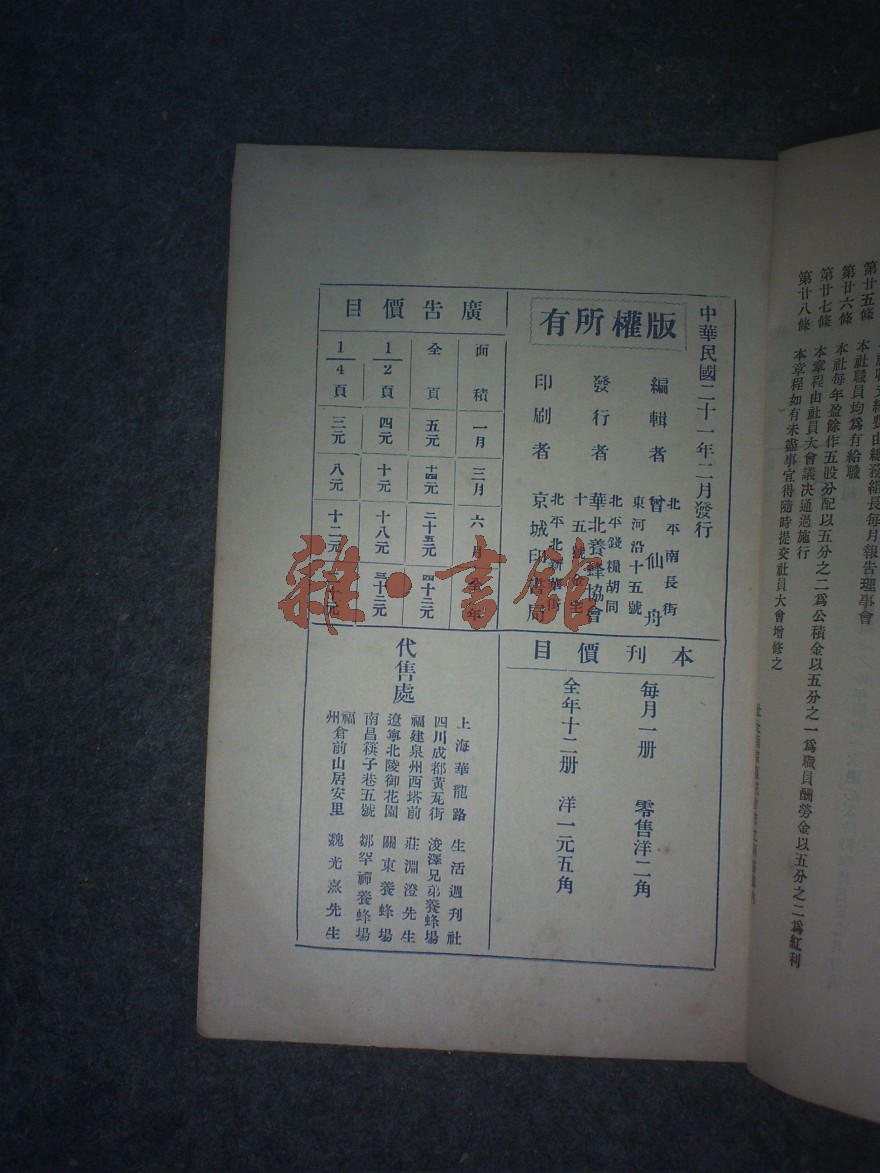 第廿五條
第廿六條 本社職員均爲有給職
第廿七條 本社每年盈餘作五股分配以五分之二爲公積金以五分之一爲職員酬勞金以五分之二爲紅利
第廿八條 本章程由社員大會議决通過施行
本章程如有未盡事宜得隨時提交社員大會增修之
中華民國二十一年二月發行
版權所有
編輯者 曾仙舟
北平南長街
東河沿十五號
發行者 華北養蜂協會
北平錢糧胡同
十五號
印刷者 京城印書局
北平北新華街
廣告價目
面積 一月 三月 六月 全年
全頁 五元 十四元 二十五元 四十二元
1/2頁 四元 十元 十八元 三十二元
1/4頁 三元 八元 十二元
本刊價目
每月一册 零售洋二角
全年十二册 洋一元五角
代售處
上海華龍路 生活週刊社
四川成都黃瓦街 浚澤兄弟養蜂場
福建泉州西塔前 莊淵澄先生
遼寧北陵御花園 關東養蜂場
南昌筷子巷五號 鄒罕禪養蜂場
福州倉前山居安里 魏光熹先生
雜·書館